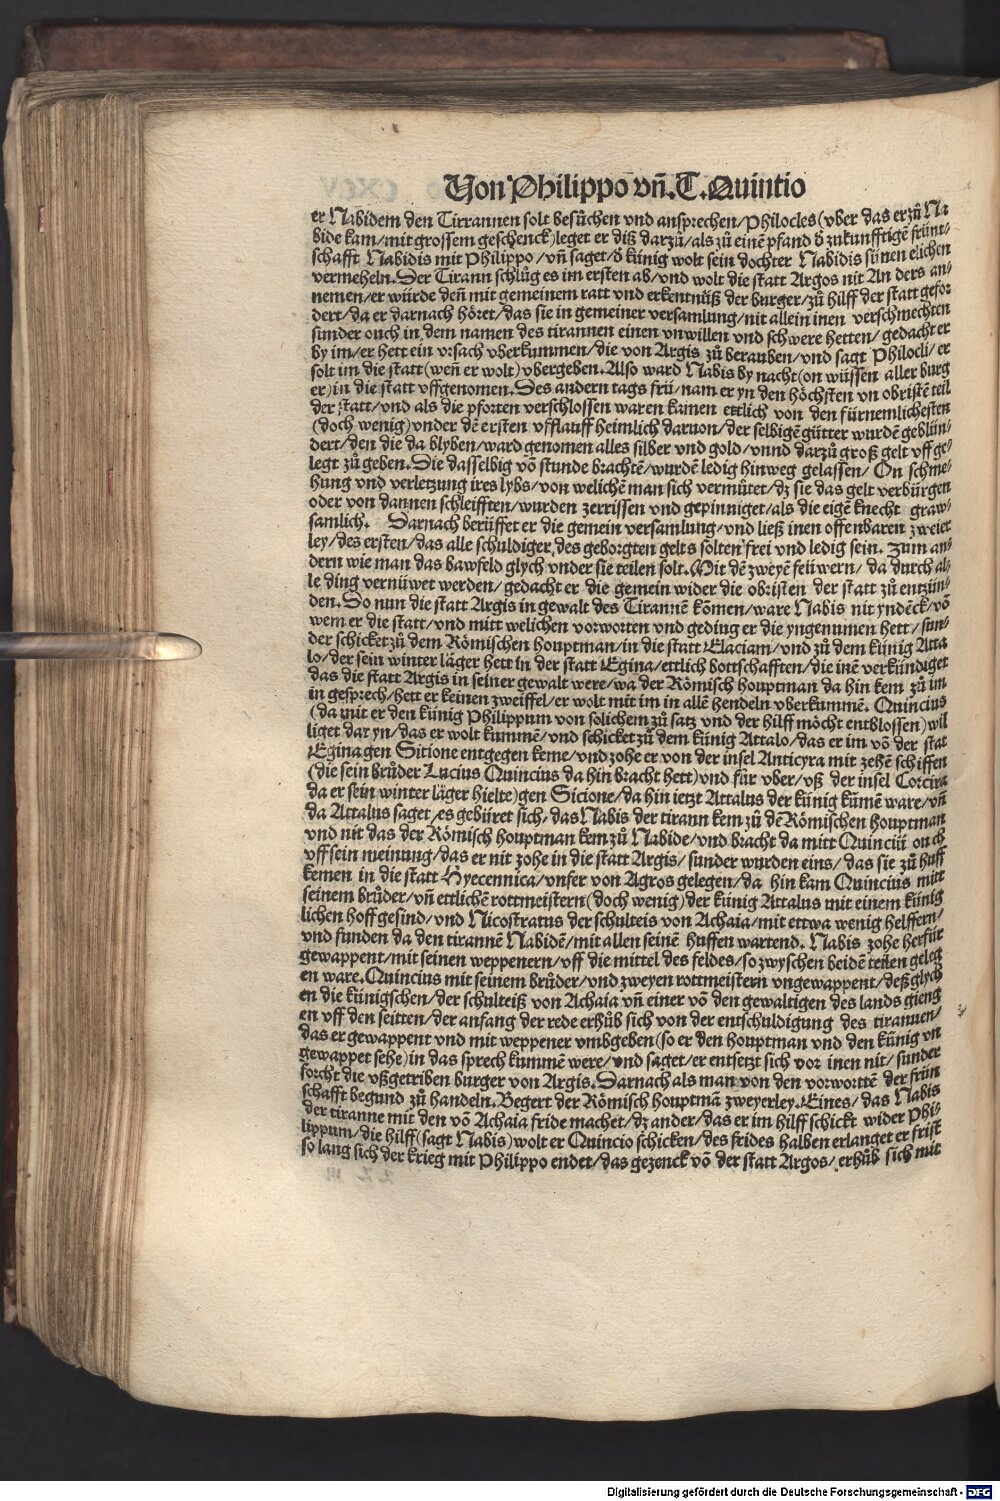 Von Philippo vñ. T. Quintio
er Nabidem den Tirrannen solt besůchen vnd ansprechen/Philocles(vber das er zů Na⸗
bide kam/mit grossem geschenck)leget er diß darzů/als zů einē pfand d̄ zukunfftigē früntt⸗
schafft Nabidis mit Philippo/vñ saget/d̄ künig wolt sein dochter Nabidis sünen elichen
vermeheln. Der Tirann schlůg es im ersten ab/vnd wolt die statt Argos nit An ders an⸗
nemen/er würde deñ mit gemeinem ratt vnd erkentnüß der burger/zů hilff der statt gefor
dert/da er darnach höret/das sie in gemeiner versamlung/nit allein inen verschmechten
sunder ouch in dem namen des tirannen einen vnwillen vnd schwere hetten/ gedacht er
by im/er hett ein vrsach vberkummen/die von Argis zů berauben/vnd sagt Philocli/ er
solt im die statt(weñ er wolt)vbergeben. Also ward Nabis by nacht(on wüssen aller burg
er)in die statt vffgenomen. Des andern tags frü/nam er yn den höchsten vn obristē teil
der statt/vnd als die pforten verschlossen waren kamen ettlich von den fürnemlichesten
(doch wenig)vnder dē ersten vfflauff heimlich daruon/der selbigē gütter wurdē geblün⸗
dert/den die da blyben/ward genomen alles silber vnd gold/vnnd darzů groß gelt vff ge⸗
legt zů geben. Die dasselbig võ stunde brachtē/wurdē ledig hinweg gelassen/ On schme⸗
hung vnd verletzung ires lybs/von welichē man sich vermůtet/dz sie das gelt verbürgen
oder von dannen schleifften/wurden zerrissen vnd gepinniget/als die eigē knecht graw⸗
samlich. Darnach berüffet er die gemein versamlung/vnd ließ inen offenbaren zweier
ley/des ersten/das alle schuldiger,des geborgten gelts solten frei vnd ledig sein. Zum an⸗
dern wie man das bawfeld glych vnder sie teilen solt. Mit dē zweyē feüwern/ da durch al⸗
le ding vernüwet werden/ gedacht er die gemein wider die obristen der statt zů entzün⸗
den. So nun die statt Argis in gewalt des Tirannē kõmen/ware Nabis nit yndēck/võ
wem er die statt/vnd mitt welichen vorworten vnd geding er die yngenumen hett/ sun⸗
der schicket zů dem Römischen houptman/in die statt Elaciam/vnd zů dem künig Atta
lo/der sein winter läger hett in der statt Egina/ettlich bottschafften/die inē verkündiget
das die statt Argis in seiner gewalt were/wa der Römisch houptman da hin kem zů im
in gesprech/hett er keinen zweiffel/er wolt mit im in allē hendeln vberkummē. Quincius
(da mit er den künig Philippum von solichem zů satz vnd der hilff möcht entblossen)wil
liget dar yn/das er wolt kummē/vnd schicket zů dem künig Attalo/das er im võ der stat
Egina gen Sitione entgegen keme/vnd zohe er von der insel Anticyra mit zehē schiffen
(die sein brůder Lucius Quincius da hin bracht hett)vnd für vber/vß der insel Corcira
da er sein winter läger hielte)gen Sicione/da hin ietzt Attalus der künig kūmē ware/vñ
da Attalus saget/es gebüret sich/das Nabis der tirann kem zů dē Römischen houptman
vnd nit das der Römisch houptman kem zů Nabide/vnd bracht da mitt Quinciū ouch
vff sein meinung/das er nit zohe in die statt Argis/ sunder wurden eins/das sie zů huff
kemen in die statt Hyecennica/vnfer von Agros gelegen/da hin kam Quincius mitt
seinem brůder/vñ ettlichē rottmeistern(doch wenig)der künig Attalus mit einem künig
lichen hoff gesind/vnd Nicostratus der schulteis von Achaia/mit ettwa wenig helffern/
vnd funden da den tirannē Nabidē/mit allen seinē huffen wartend. Nabis zohe herfür
gewappent/mit seinen weppenern/vff die mittel des feldes/so zwyschen beidē teilen geleg
en ware. Quincius mit seinem brůder/vnd zweyen rottmeistern vngewappent/deßglych
en die künigschen/der schulteiß von Achaia vñ einer võ den gewaltigen des lands gieng
en vff den seitten/der anfang der rede erhůb sich von der entschuldigung des tirannen/
das er gewappent vnd mit weppener vmbgeben(so er den houptman vnd den künig vn
gewappet sehe)in das sprech kummē were/vnd saget/er entsetzt sich vor inen nit/ sunder
forcht die vßgetriben burger von Argis. Darnach als man von den vorworttē der frün
schafft begund zů handeln. Begert der Römisch houptmā zweyerley. Eines/das Nabis
der tiranne mit den võ Achaia fride machet/dz ander/das er im hilff schickt wider Phi⸗
lippum/die hilff(sagt Nabis)wolt er Quincio schicken/des frides halben erlanget er frist
so lang sich der krieg mit Philippo endet/das gezenck võ der statt Argos/erhůb sich mit
Digitalisierung gefördert durch die Deutsche Forschungsgemeinschaft - DFG